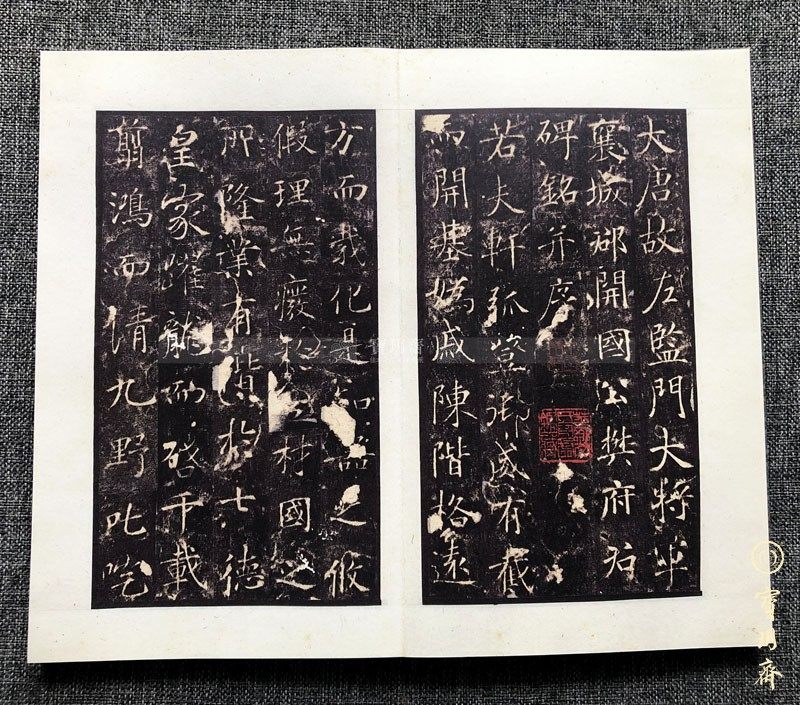 大唐故左監門大將軍
襄城郡開國公樊府君
碑銘并序
若夫軒弧御威有截
而開基戚陳階格遠
方而裁化是知器之攸
假理無癈於材國之
所隆業有於七德
皇家躍龍而啓千載
翦鴻而清九野叱咤